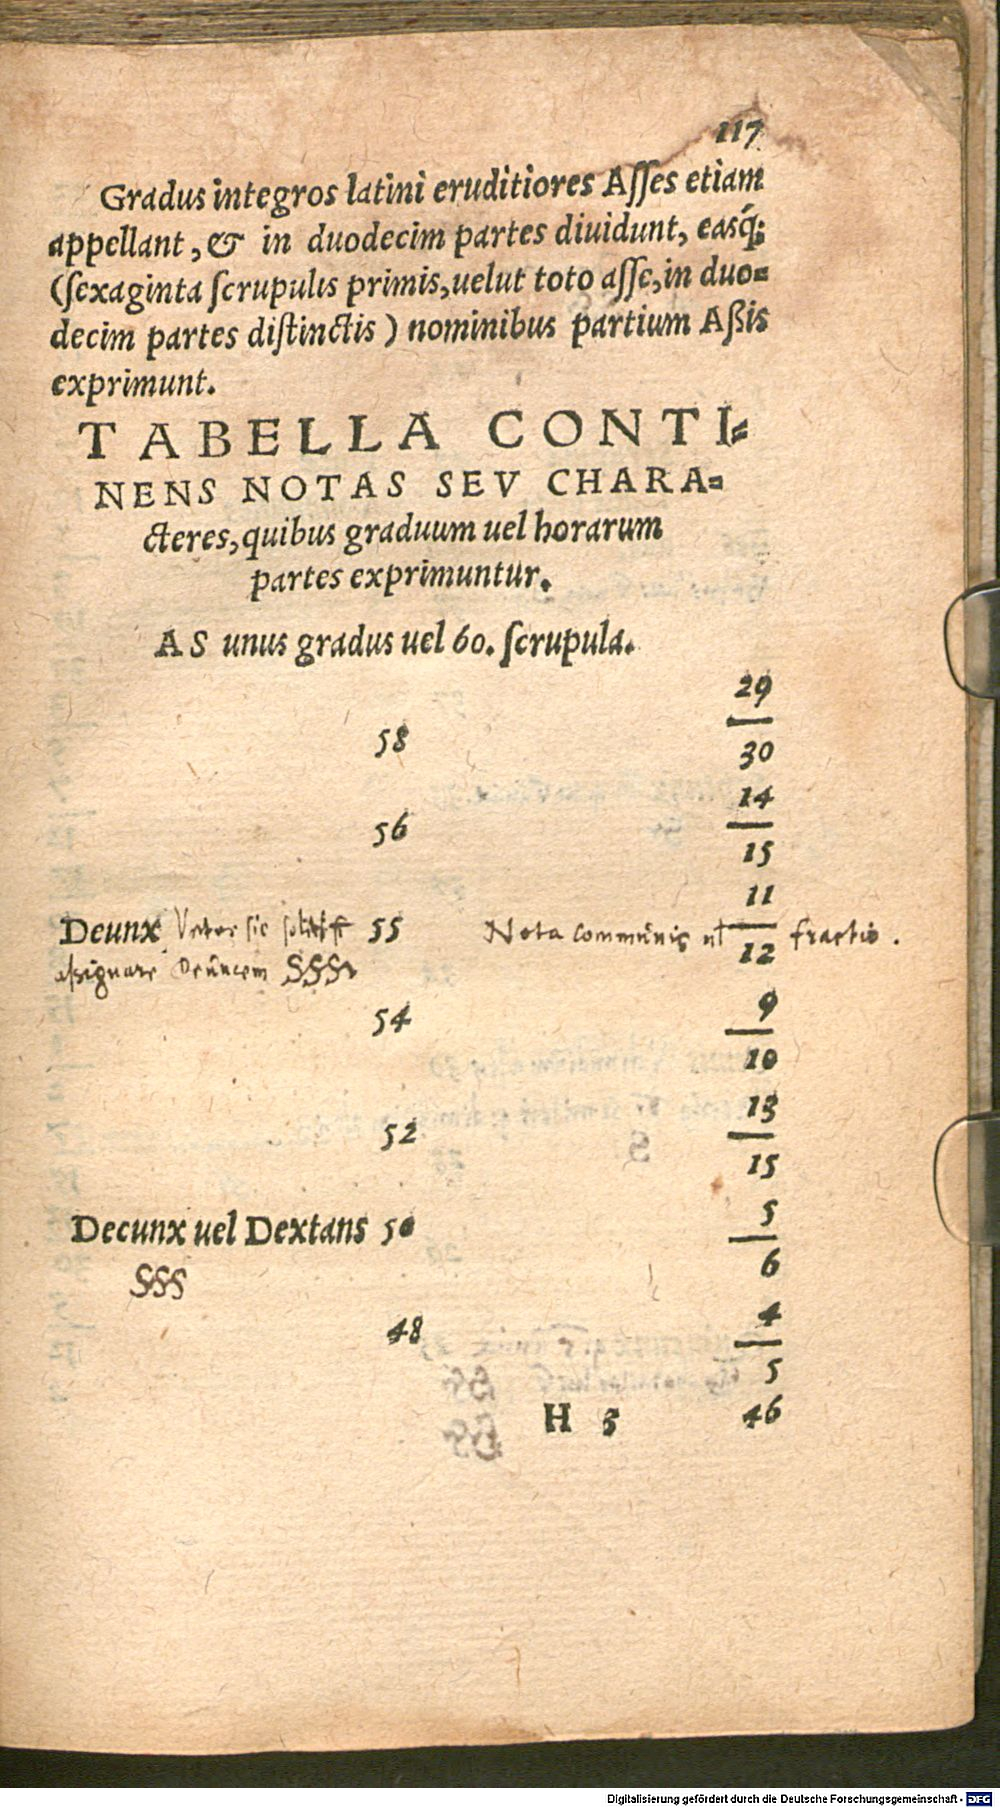 117
Gradus integros latini eruditiores Aſſes etiam
appellant, & in duodecim partes diuidunt, easq́;
(ſexaginta ſcrupulis primis, uelut toto aſſe, in duo⸗
decim partes diſtinctis) nominibus partium Aßis
exprimunt.
TABELLA CONTI⸗
NENS NOTAS SEV CHARA⸗
cteres, quibus graduum uel horarum
partes exprimuntur.
AS unus gradus uel 60. ſcrupula.
29
58
30
14
56
15
11
Deunx sic 55 Nota communis fractio.
12
aſsignare Deuncem
54
9
10
52
13
15
Decunx uel Dextans 50
5
6
SSS
48
4
5
H 5 46
Digitalisierung gefördert durch die Deutsche Forschungsgemeinschaft - DFG